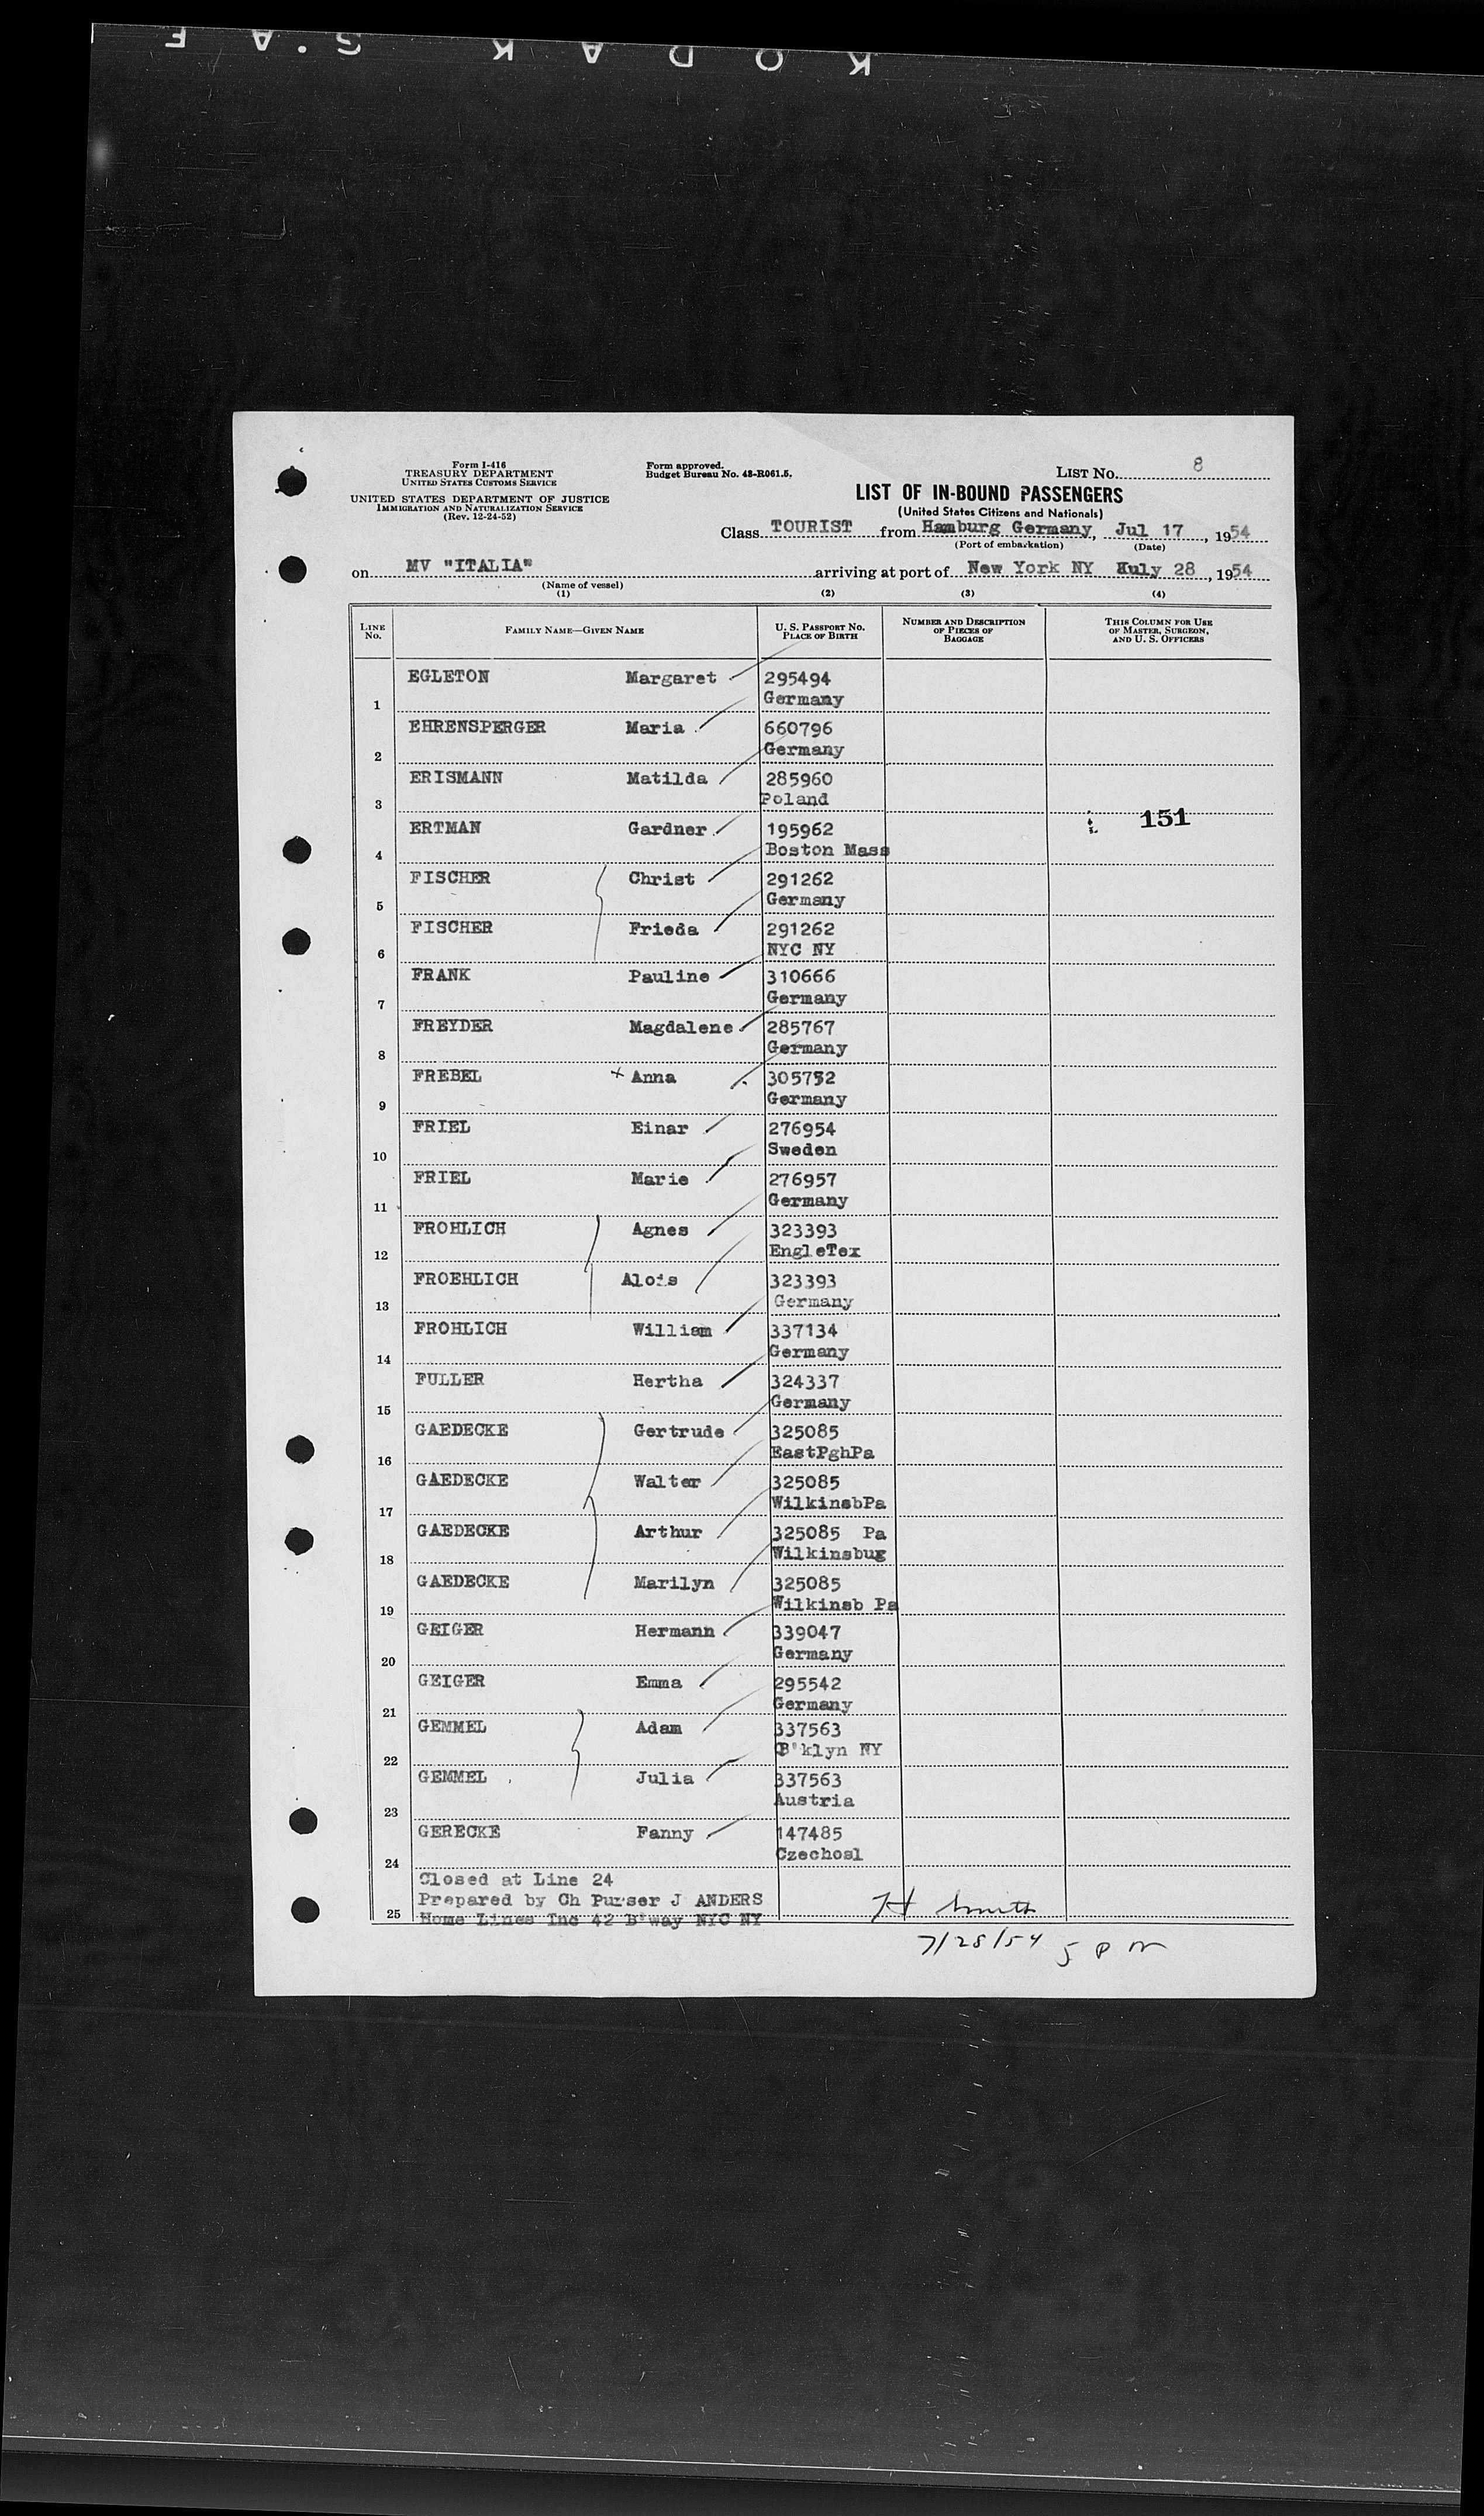 KODAK S.A F
Form I-416
TREASURY DEPARTMENT
UNITED STATES CUSTOMS SERVICE
UNITED STATES DEPARTMENT OF JUSTICE
IMMIGRATION AND NATURALIZATION SERVICE
(Rev. 12-24-52)
Form approved.
Budget Bureau No. 43-R061.5.
LIST No. 8
LIST OF IN-BOUND PASSENGERS
(United States Citizens and Nationals)
Class TOURIST from Hamburg Germany, Jul 17, 1954
(Port of embarkation) (Date)
on MV "ITALIA" arriving at port of New York NY Huly 28, 1954
(Name of vessel)
(1) (2) (3) (4)
LINE No. FAMILY NAME—GIVEN NAME U. S. PASSPORT NO. PLACE OF BIRTH NUMBER AND DESCRIPTION OF PIECES OF BAGGAGE THIS COLUMN FOR USE OF MASTER, SURGEON, AND U. S. OFFICERS
EGLETON Margaret 295494
1 Germany
EHRENSPERGER Maria 660796
2 Germany
ERISMANN Matilda 285960
3 Poland
151
ERTMAN Gardner 195962
4 Boston Mass
FISCHER Christ 291262
5 Germany
FISCHER Frieda 291262
6 NYC NY
FRANK Pauline 310666
7 Germany
FREYDER Magdalene 285767
8 Germany
FREBEL x Anna 305752
9 Germany
FRIEL Einar 276954
10 Sweden
FRIEL Marie 276957
11 Germany
FROHLICH Agnes 323393
12 EngleTex
FROEHLICH Alois 323393
13 Germany
FROHLICH William 337134
14 Germany
FULLER Hertha 324337
15 Germany
GAEDECKE Gertrude 325085
16 EastPghPa
GAEDECKE Walter 325085
17 WilkinsbPa
GAEDECKE Arthur 325085 Pa
18 Wilkinsbug
GAEDECKE Marilyn 325085
19 Wilkinsb Pa
GEIGER Hermann 339047
20 Germany
GEIGER Emma 295542
21 Germany
GEMMEL Adam 337563
22 B'klyn NY
GEMMEL Julia 337563
23 Austria
GERECKE Fanny 147485
24 Czechosl
Closed at Line 24
Prepared by Ch Purser J ANDERS
25 Home Lines Inc 42 B'way NYC NY
H Smith
7/28/54 5 PM